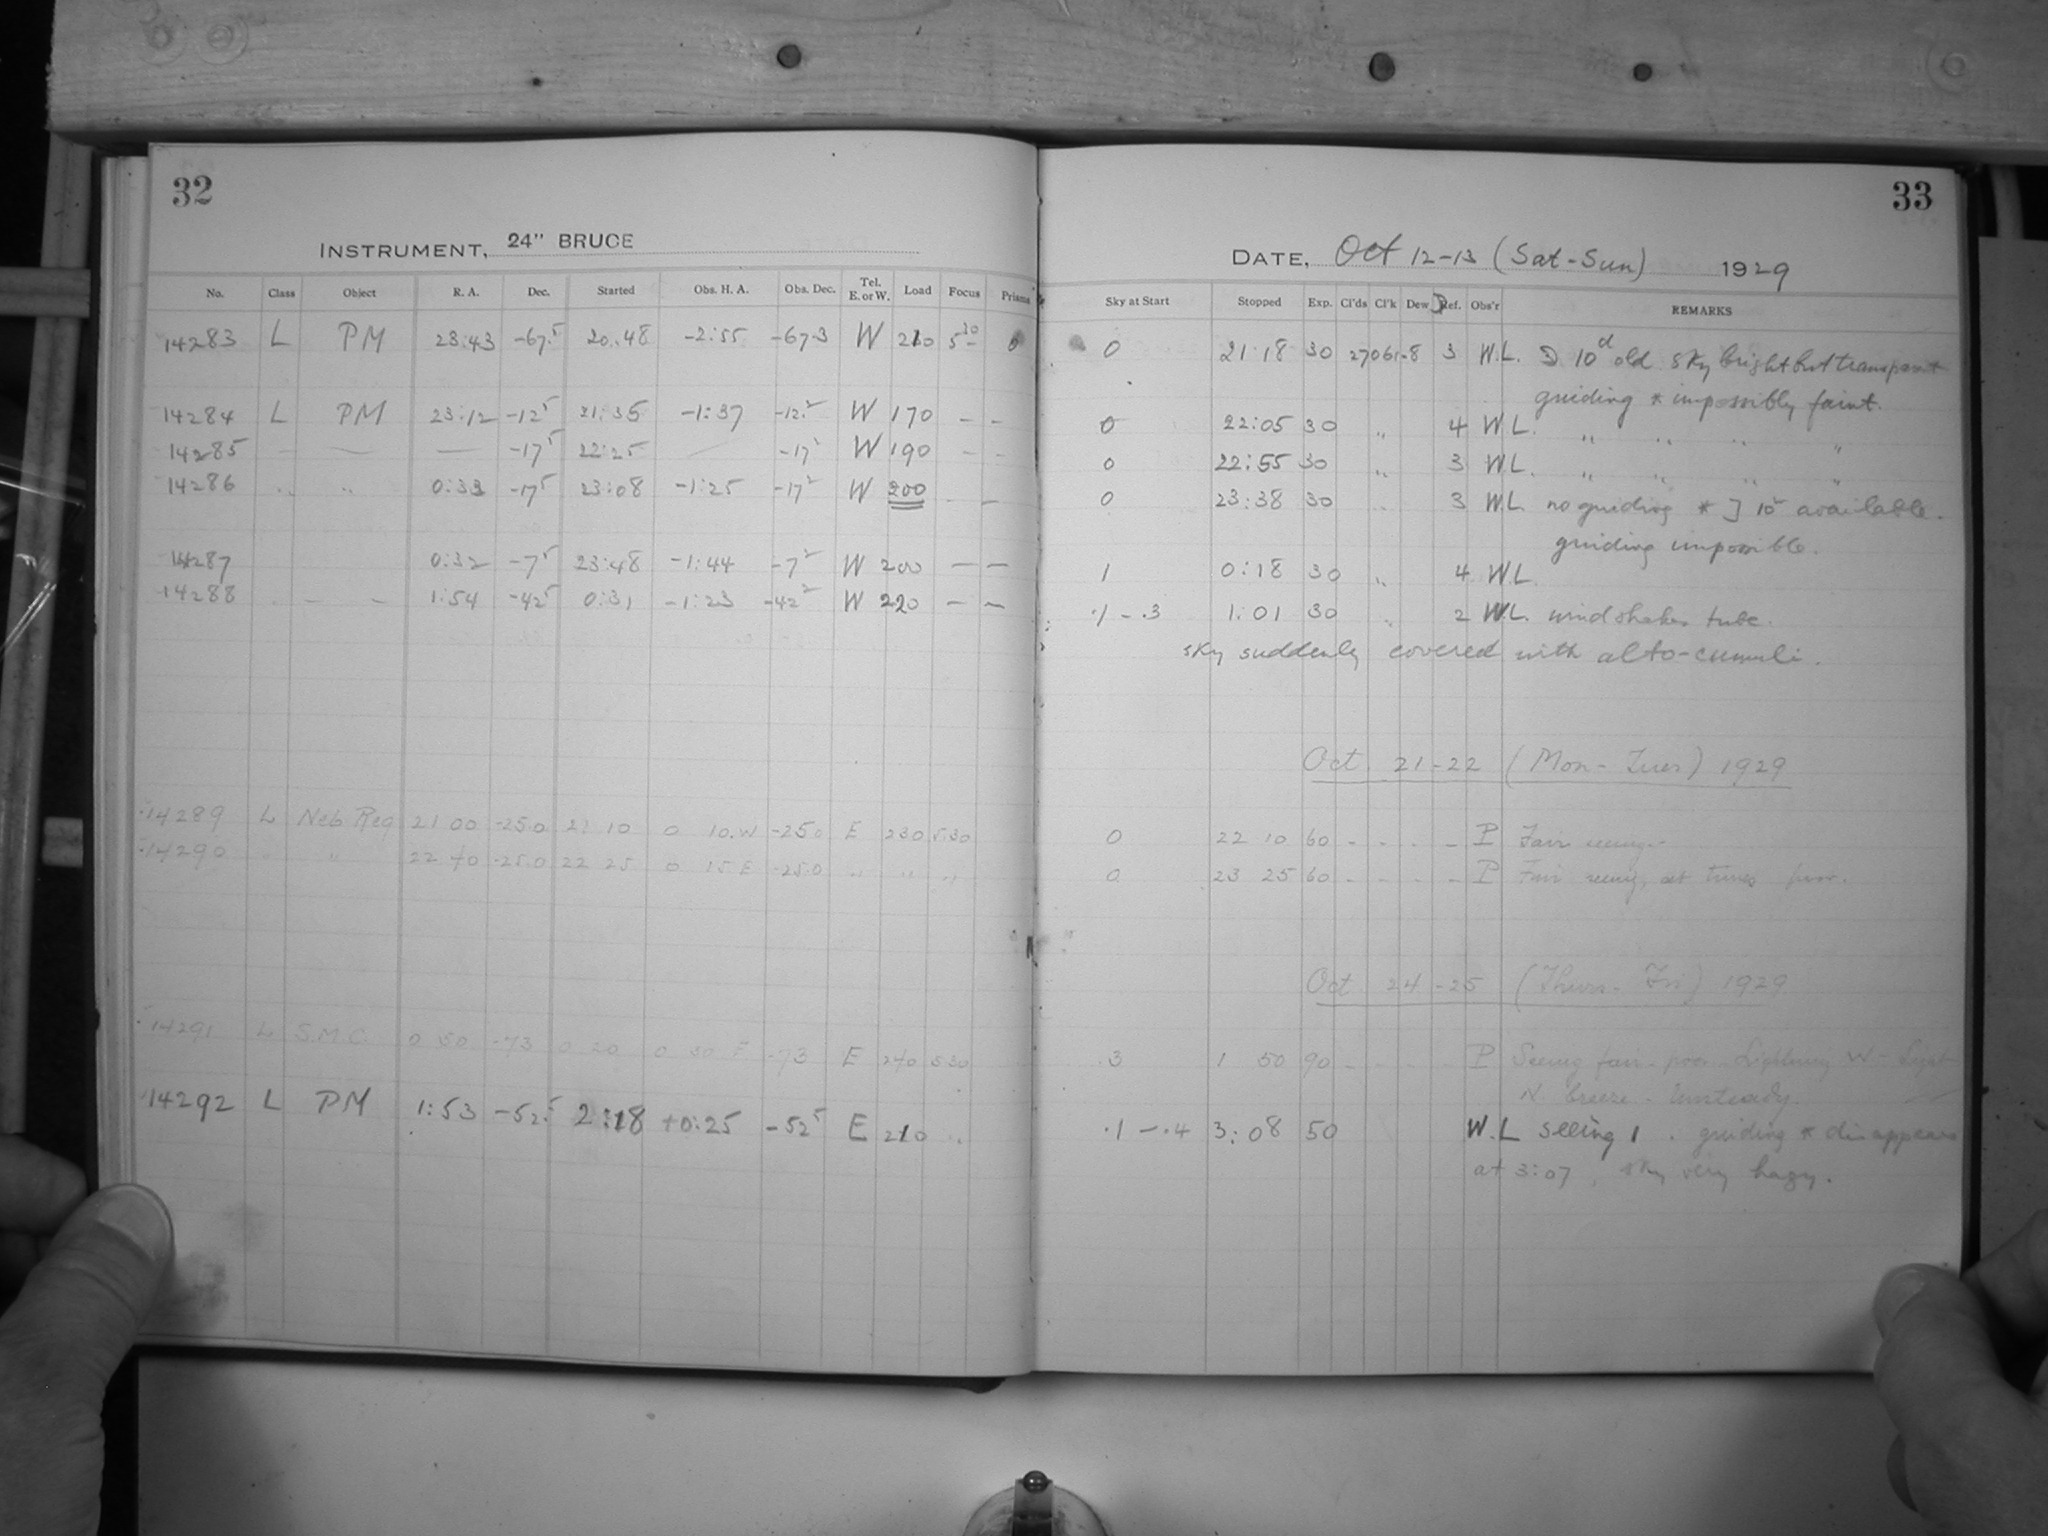 32
INSTRUMENT, 24" BRUCE
No. Class Object R. A. Dec. Started Obs. H. A. Obs. Dec. Tel. E. or W. Load Focus Prisms
14283 L PM 23:43 -67.5 20:48 -2:55 -67.3 W 210 5 30 0
14284 L PM 23:12 -12 5 21:35 -1:37 -12.2 W 170 - -
14285 — — — -17 5 22:25 — -17 2 W 190 - -
14286 " " 0:33 -17 5 23:08 -1:25 -17 2 W 200 - -
14287 0:32 -7 5 23:48 -1:44 -7 2 W 200 - -
14288 - - 1:54 -42 5 0:31 -1:23 -42 2 W 220 - -
14289 L Neb Reg 21 00 -25.0 21 10 0 10.W -25.0 E 230 5.30
14290 " " 22 40 -25.0 22 25 0 15 E -25.0 " " "
14291 L S.M.C. 0 50 -73 0 20 0 30 E -73 E 240 5.30
14292 L PM 1:53 -52.5 2:18 +0:25 -52 5 E 210 "
33
DATE, Oct 12-13 (Sat-Sun) 1929
Sky at Start Stopped Exp. Cl'ds Cl'k Dew Ref. Obs'r REMARKS
0 21:18 30 27061-8 3 W.L. 10 d old sky bright but transparent
guiding * impossibly faint.
0 22:05 30 " 4 W.L. " " " "
0 22:55 30 " 3 W.L. " " " "
0 23:38 30 " 3 W.L. no guiding * available.
guiding impossible.
1 0:18 30 " 4 W.L.
.1 - .3 1:01 30 " 2 W.L. wind shakes tube.
sky suddenly covered with alto-cumuli.
Oct 21-22 (Mon-Tues) 1929
0 22 10 60 - - - - P Fair seeing.-
0 23 25 60 - - - - P Fair seeing, at times poor.
Oct 24-25 (Thurs-Fri) 1929
.3 1 50 90 - - - - P Seeing fair - poor - Lightning W - Light
N. breeze - Unsteady.
.1 - .4 3:08 50 W.L seeing 1. guiding * disappears
at 3:07, sky very hazy.